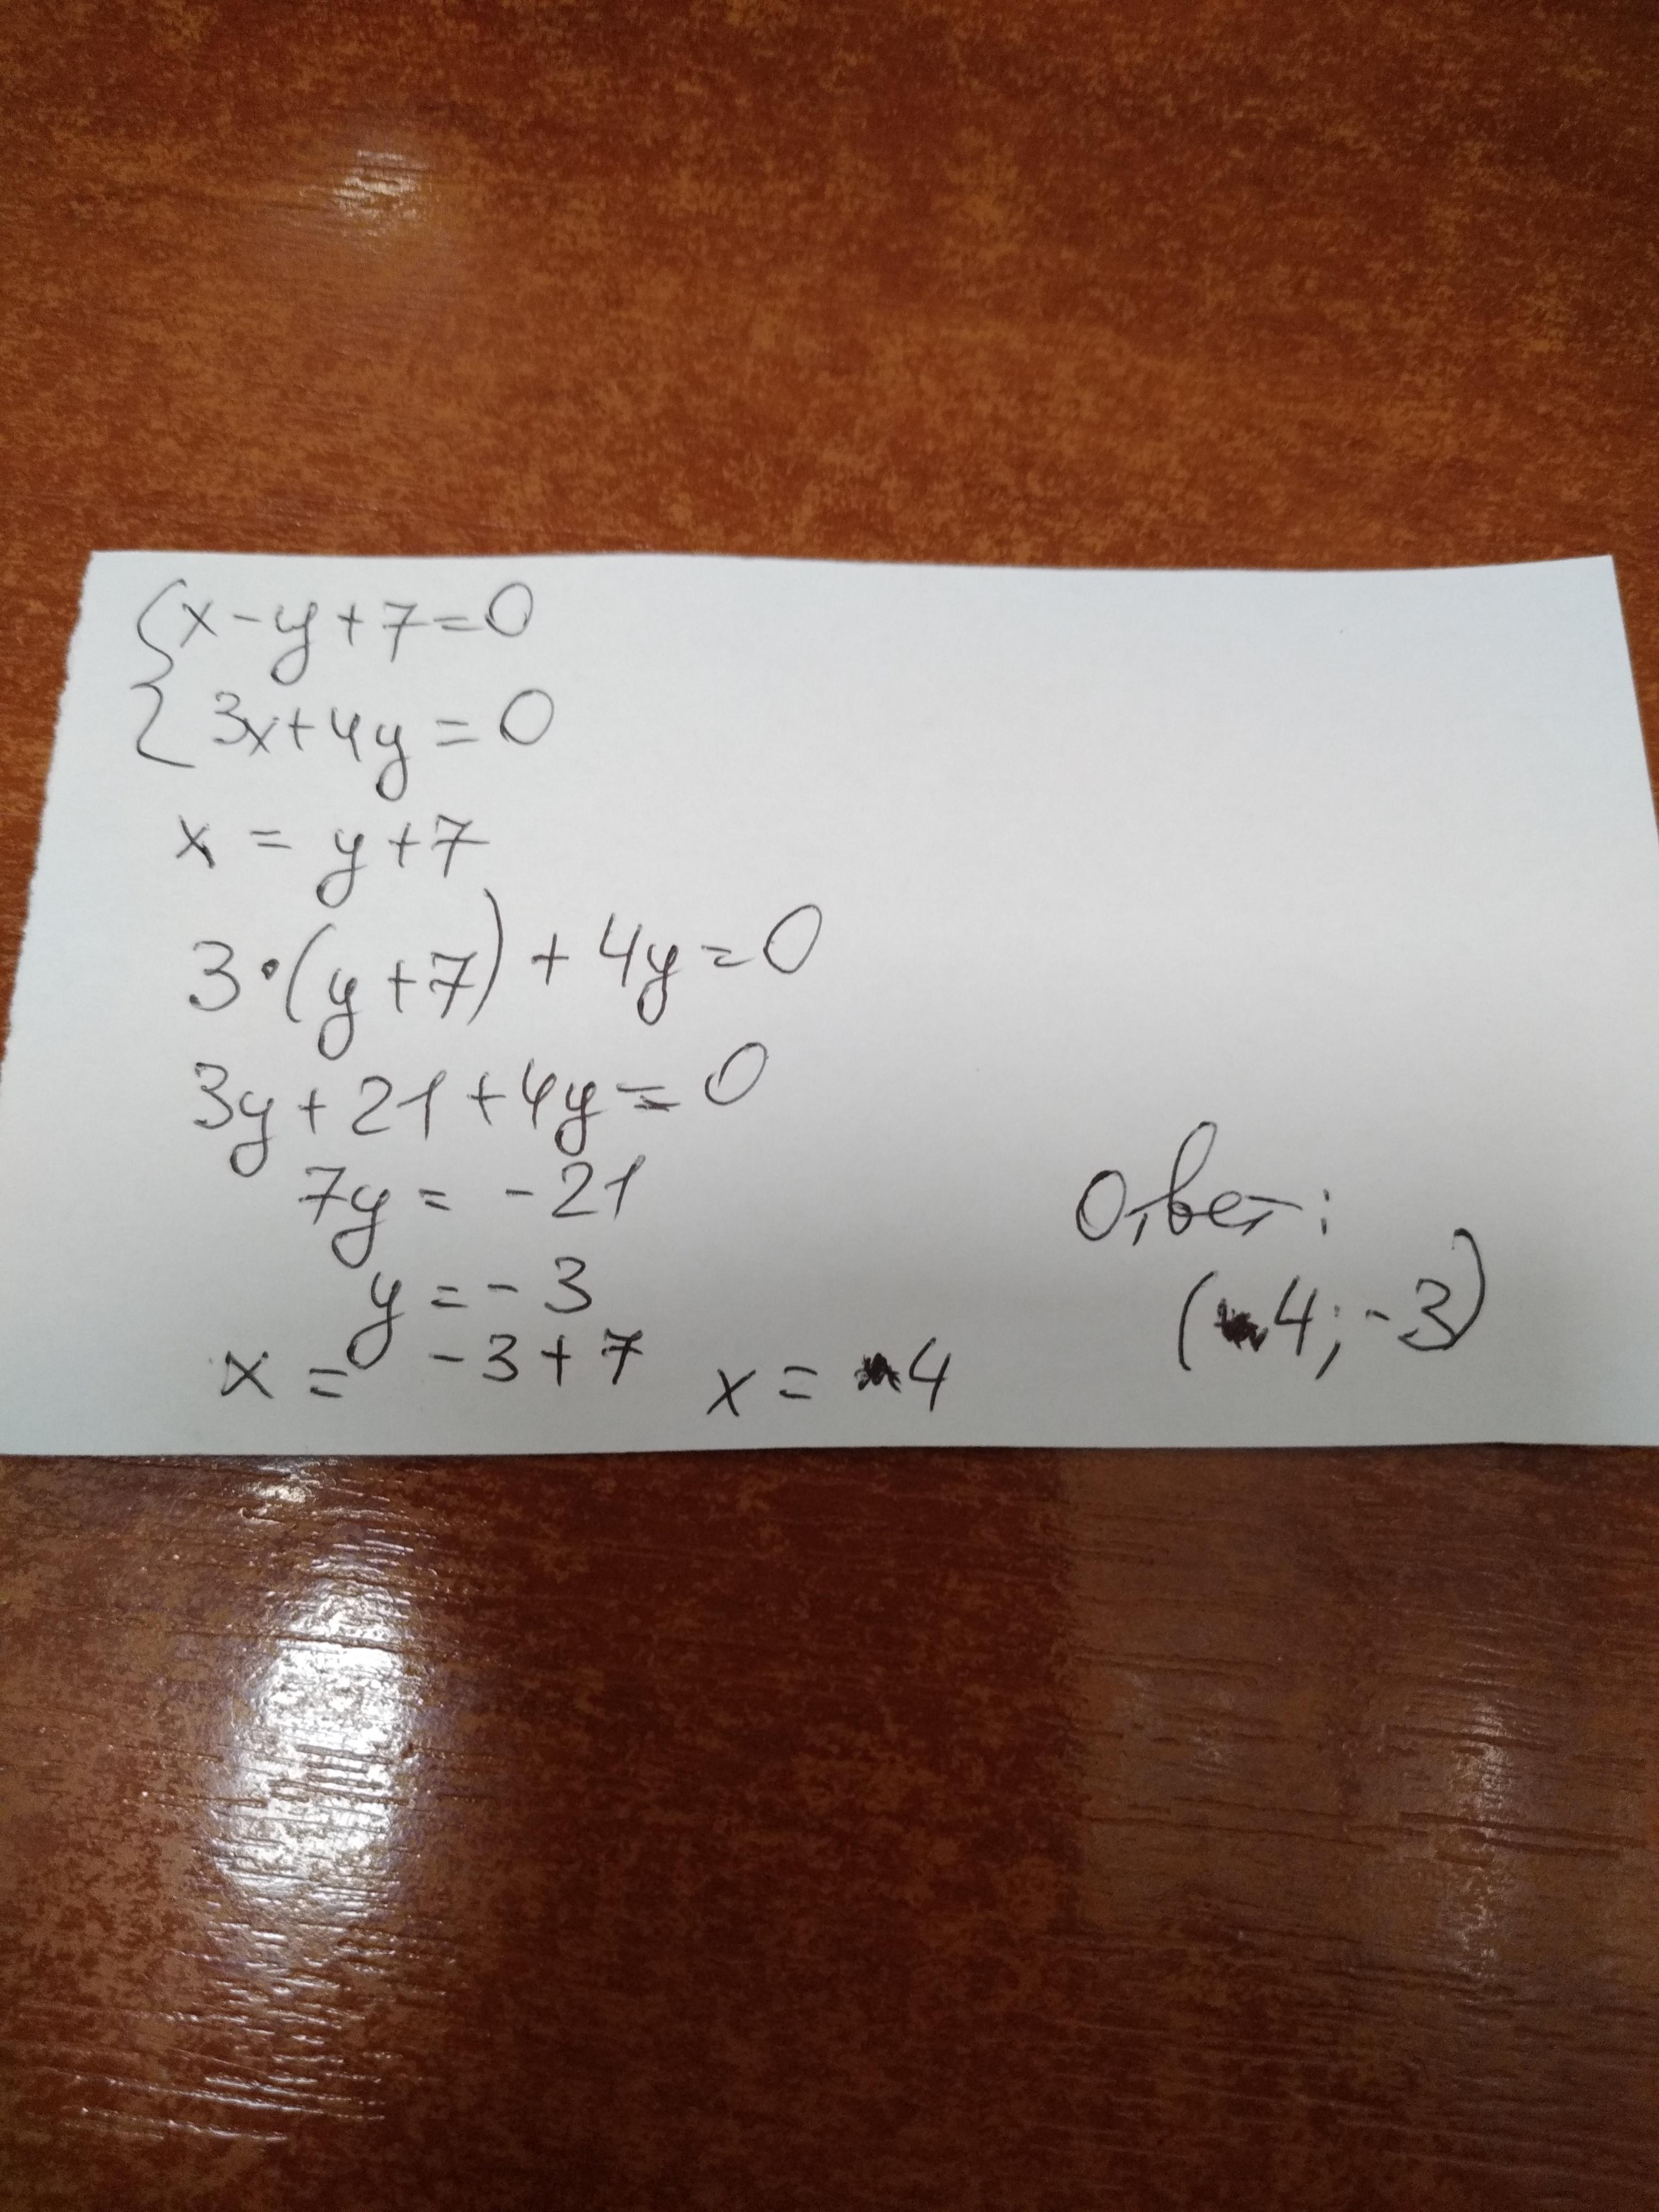 {x-y+7=0
{3x+4y=0
x = y+7
3·(y+7)+4y=0
3y+21+4y=0
7y=-21
y=-3
x=-3+7 x=4
Ответ:
(4;-3)